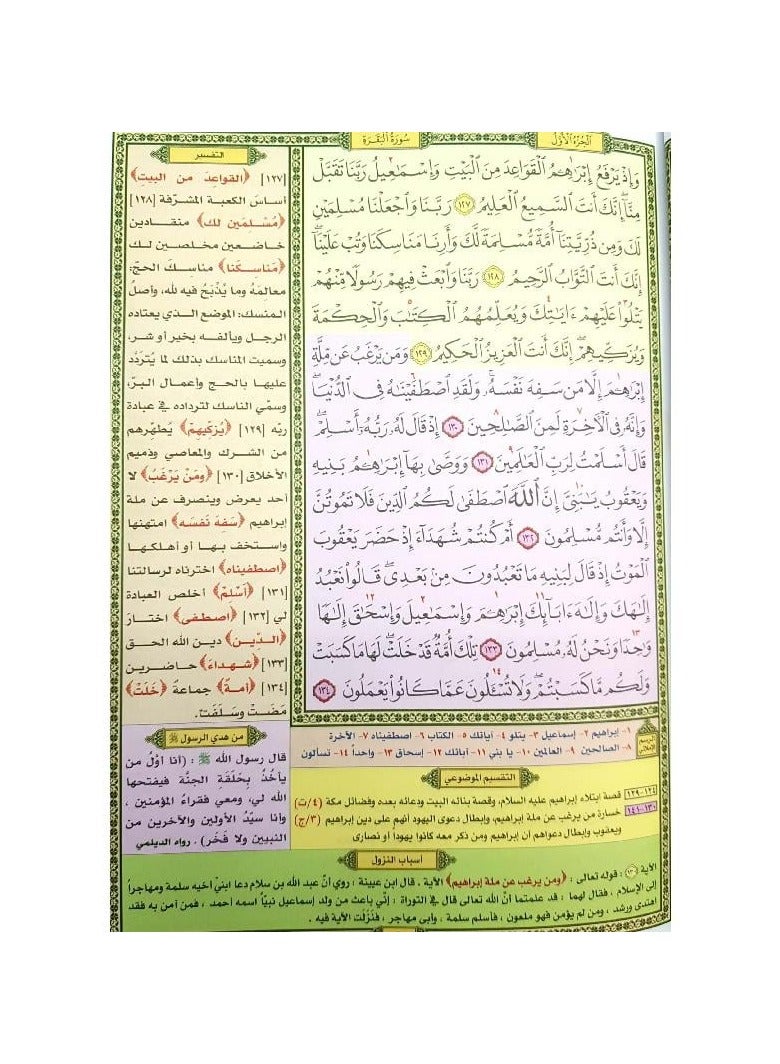 الجزء الأول
سورة البقرة
وَإِذْ يَرْفَعُ إِبْرَٰهِـۧمُ ٱلْقَوَاعِدَ مِنَ ٱلْبَيْتِ وَإِسْمَٰعِيلُ رَبَّنَا تَقَبَّلْ
مِنَّآ إِنَّكَ أَنتَ ٱلسَّمِيعُ ٱلْعَلِيمُ ١٢٧ رَبَّنَا وَٱجْعَلْنَا مُسْلِمَيْنِ
لَكَ وَمِن ذُرِّيَّتِنَآ أُمَّةً مُّسْلِمَةً لَّكَ وَأَرِنَا مَنَاسِكَنَا وَتُبْ عَلَيْنَآ
إِنَّكَ أَنتَ ٱلتَّوَّابُ ٱلرَّحِيمُ ١٢٨ رَبَّنَا وَٱبْعَثْ فِيهِمْ رَسُولًا مِّنْهُمْ
يَتْلُوا۟ عَلَيْهِمْ ءَايَٰتِكَ وَيُعَلِّمُهُمُ ٱلْكِتَٰبَ وَٱلْحِكْمَةَ
وَيُزَكِّيهِمْ إِنَّكَ أَنتَ ٱلْعَزِيزُ ٱلْحَكِيمُ ١٢٩ وَمَن يَرْغَبُ عَن مِّلَّةِ
إِبْرَٰهِـۧمَ إِلَّا مَن سَفِهَ نَفْسَهُۥ وَلَقَدِ ٱصْطَفَيْنَٰهُ فِى ٱلدُّنْيَا
وَإِنَّهُۥ فِى ٱلْـَٔاخِرَةِ لَمِنَ ٱلصَّٰلِحِينَ ١٣٠ إِذْ قَالَ لَهُۥ رَبُّهُۥٓ أَسْلِمْ
قَالَ أَسْلَمْتُ لِرَبِّ ٱلْعَٰلَمِينَ ١٣١ وَوَصَّىٰ بِهَآ إِبْرَٰهِـۧمُ بَنِيهِ
وَيَعْقُوبُ يَٰبَنِىَّ إِنَّ ٱللَّهَ ٱصْطَفَىٰ لَكُمُ ٱلدِّينَ فَلَا تَمُوتُنَّ
إِلَّا وَأَنتُم مُّسْلِمُونَ ١٣٢ أَمْ كُنتُمْ شُهَدَآءَ إِذْ حَضَرَ يَعْقُوبَ
ٱلْمَوْتُ إِذْ قَالَ لِبَنِيهِ مَا تَعْبُدُونَ مِنۢ بَعْدِى قَالُوا۟ نَعْبُدُ
إِلَٰهَكَ وَإِلَٰهَ ءَابَآئِكَ إِبْرَٰهِـۧمَ وَإِسْمَٰعِيلَ وَإِسْحَٰقَ إِلَٰهًا
وَٰحِدًا وَنَحْنُ لَهُۥ مُسْلِمُونَ ١٣٣ تِلْكَ أُمَّةٌ قَدْ خَلَتْ لَهَا مَا كَسَبَتْ
وَلَكُم مَّا كَسَبْتُمْ وَلَا تُسْـَٔلُونَ عَمَّا كَانُوا۟ يَعْمَلُونَ ١٣٤
التفسير
[١٢٧] ﴿القواعدَ من البيت﴾
أساسَ الكعبة المشرّفة [١٢٨]
﴿مُسْلمَين لك﴾ منقادين
خاضعين مخلصين لك
﴿مَناسكَنا﴾ مناسك الحجّ:
معالمَهُ وما يُذْبَحَ فيه لله، وأصلُ
المنسك: الموضع الذي يعتاده
الرجل ويألفـه بخير أو شر،
وسميت المناسك بذلك لما يَتَردّد
عليها بالحج وأعمال البرّ،
وسمّي الناسك لترداده في عبادة
ربّه [١٢٩] ﴿يُزكيهمْ﴾ يُطهّرهم
من الشرك والمعاصي وذميم
الأخلاق [١٣٠] ﴿ومَنْ يَرْغَبُ﴾ لا
أحد يعرض وينصرف عن ملة
إبراهيم ﴿سَفهَ نَفْسَه﴾ امتهنها
واستخف بهـا أو أهلكهـا
﴿اصطفيناه﴾ اخترناه لرسالتنا
[١٣١] ﴿أسْلمْ﴾ أخلص العبادة
لي [١٣٢] ﴿اصطفى﴾ اختار
﴿الدّينَ﴾ دين الله الحق
[١٣٣] ﴿شهداءَ﴾ حاضرين
[١٣٤] ﴿أمةٌ﴾ جماعةٌ ﴿خَلَتْ﴾
مَضَتْ وسَلَفَتْ.
من هدي الرسول ﷺ
قال رسول الله ﷺ: (أنا أوّلُ من
يأخُذُ بِحَلَقَةِ الجنّة فيفتحها
الله لي، ومعي فقراءُ المؤمنين،
وأنا سيّدُ الأولين والآخرين من
النبيين ولا فَخْر). رواه الديلمي
الرسم الإملائي
١- إبراهيم ٢- إسماعيل ٣- يتلو ٤- آياتك ٥- الكتاب ٦- اصطفيناه ٧- الآخرة
٨- الصالحين ٩- العالمين ١٠- يا بني ١١- آبائك ١٢- إسحاق ١٣- واحداً ١٤- تسألون
التقسيم الموضوعي
١٢٤-١٢٩ قصة ابتلاء إبراهيم عليه السلام، وقصة بنائه البيت ودعائه بعده وفضائل مكة (٤/ت)
١٣٠-١٤١ خسارة من يرغب عن ملة إبراهيم، وإبطال دعوى اليهود أنهم على دين إبراهيم (٣/ج)
ويعقوب وإبطال دعواهم أن إبراهيم ومن ذكر معه كانوا يهوداً أو نصارى
أسباب النزول
الآية ١٣٠: قوله تعالى: ﴿ومن يرغب عن ملة إبراهيم﴾ الآية. قال ابن عيينة: روي أنّ عبد الله بن سلام دعا ابني أخيه سلمة ومهاجراً
إلى الإسلام، فقال لهما: قد علمتما أنّ الله تعالى قال في التوراة: إنّي باعث من ولد إسماعيل نبيّاً اسمه أحمد، فمن آمن به فقد
اهتدى ورشد، ومن لم يؤمن فهو ملعون، فأسلم سلمة، وأبى مهاجر، فنَزَلَت الآية فيه.